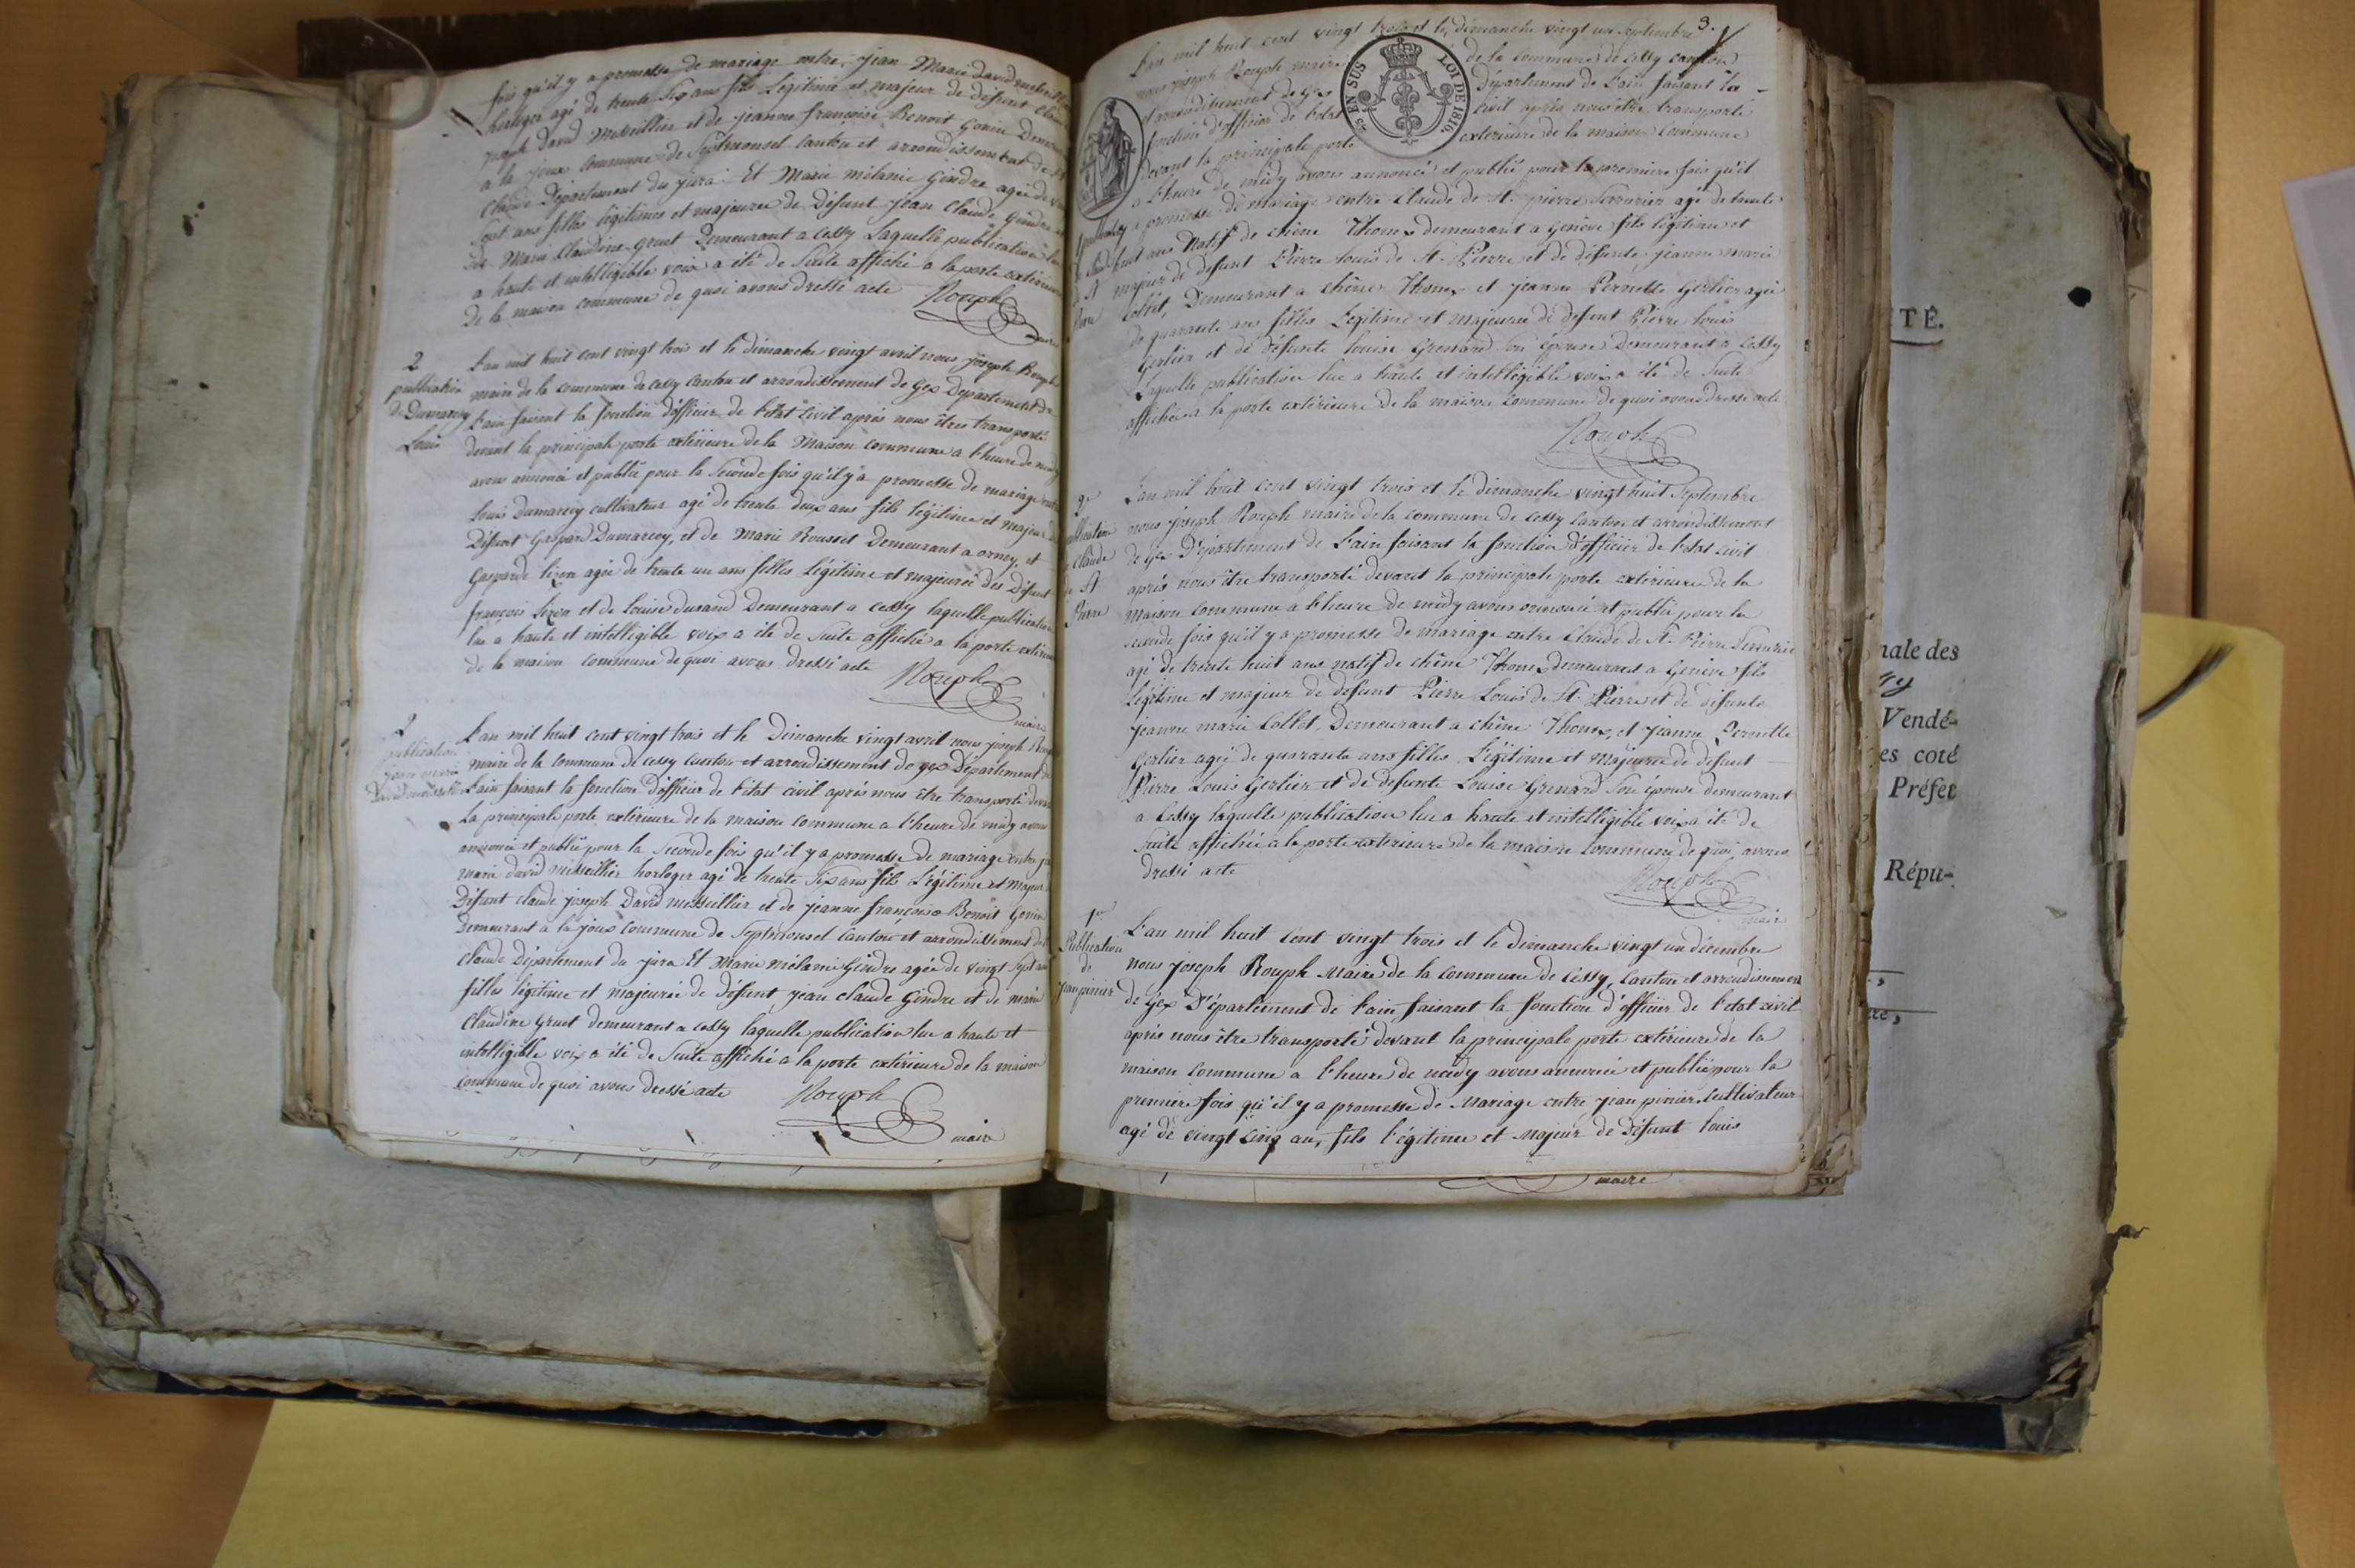 fois qu'il y a promesse de mariage entre jean Marie david
horloger agé de trente six ans fils Légitime et majeur de défunt Claude
joseph david Missillier et de jeanne françoise Benoit Gonin Demeurant
a la joux commune de Septmoncel Canton et arrondissement de St
Claude Département du jura Et Marie mélanie Gindre agée de vingt
Sept ans filles légitimes et majeures de Défunt jean Claude Gindre et
de Marie Claudine gruet Demeurant a Cessy Laquelle publication lue
a haute et intelligible voix a été de Suite affiché a la porte extérieure
de la maison commune de quoi avons dressé acte Rouph
maire
2
publication
de Dumarcey
Louis
L'an mil huit cent vingt trois et le dimanche vingt avril nous joseph Rouph
maire de la commune de Cessy Canton et arrondissement de Gex Département de
L'ain faisant la fonction d'officier de l'état Civil après nous êtres transporté
devant la principale porte extérieure de la Maison commune a l'heure de midy
avons annoncé et publié pour la Seconde fois qu'il y a promesse de mariage entre
Louis Dumarcey cultivateur agé de trente deux ans fils légitime et majeur de
Défunt Gaspard Dumarcey, et de Marie Rousset Demeurant a ornex, et
Gasparde lizon agée de trente un ans filles Légitime et majeure des Défunt
françois Lizon et de Louise durand Demeurant a Cessy laquelle publication
lue a haute et intelligible voix a été de Suite affiché a la porte extérieure
de la maison commune de quoi avons dressé acte Rouph
maire
2
publication
jean marie
David
L'an mil huit cent vingt trois et le Dimanche vingt avril nous joseph Rouph
maire de la Commune de Cessy Canton et arrondissement de gex Département de
L'ain faisant la fonction d'officier de l'état civil après nous être transporté devant
La principale porte extérieure de la maison commune a l'heure de midy avons
annoncé et publié pour la Seconde fois qu'il y a promesse de mariage entre jean
marie david Missillier horloger agé de trente Six ans fils Légitime et majeur
Défunt claude joseph David Missillier et de jeanne françoise Benoit Gonin
Demeurant a la joux Commune de Septmoncel Canton et arrondissement de St
Claude Département du jura Et Marie mélanie Gindre agée de vingt Sept ans
filles légitime et majeure de Défunt jean claude Gindre et de marie
Claudine Gruet demeurant a Cessy laquelle publication lue a haute et
intelligible voix a été de Suite affiché a la porte extérieure de la maison
commune de quoi avons dressé acte Rouph
maire
3.
L'an mil huit cent vingt trois et le dimanche vingt un Septembre
nous joseph Rouph maire de la Commune de Cessy canton
et arrondissement de gex Département de L'ain faisant la
fonction d'officier de l'état Civil après nous être transporté
devant la principale porte extérieure de la maison Commune
EN SUS LOI DE 1816
a l'heure de midy avons annoncé et publié pour la premiere fois qu'il
y a promesse de mariage entre Claude de St. pierre Serrurier agé de trente
huit ans Natif de chêne Thonex demeurant a Genève fils légitime et
majeur de défunt Pierre Louis de St. Pierre et de défunte jeanne marie
Collet, Demeurant a chêne Thonex et jeanne Pernette Gerlier agée
de quarante ans filles Légitime et Majeure de défunt Pierre Louis
Gerlier et de défunte louise Grenard son épouse Demeurant a Cessy
Laquelle publication lue a haute et intelligible voix a été de Suite
affichée a la porte extérieure de la maison Commune de quoi avons dressé acte
Rouph
2e
publication
Claude
de St
Pierre
L'an mil huit cent vingt trois et le dimanche vingt huit Septembre
nous joseph Rouph maire de la commune de Cessy Canton et arrondissement
de gex Département de L'ain faisant la fonction d'officier de l'état civil
après nous être transporté devant la principale porte extérieure de la
Maison commune a l'heure de midy avons annoncé et publié pour la
seconde fois qu'il y a promesse de mariage entre Claude de St. Pierre Serrurier
agé de trente huit ans natif de chêne Thonex demeurant a Genève fils
Légitime et majeur de défunt Pierre Louis de St. Pierre et de défunte
jeanne marie Collet, Demeurant a chêne Thonex, et jeanne Pernette
Gerlier agée de quarante ans filles Légitime et Majeure de défunt
Pierre Louis Gerlier et de défunte Louise Grenard Son épouse demeurant
a Cessy laquelle publication lue a haute et intelligible voix a été de
Suite affichée a la porte extérieure de la maison Commune de quoi avons
dressé acte Rouph
maire
1er
Publication
de
jean pinier
L'an mil huit cent vingt trois et le dimanche vingt un décembre
nous Joseph Rouph Maire de la Commune de Cessy, Canton et arrondissement
de Gex Département de l'ain faisant la fonction d'officier de l'etat civil
après nous être transporté devant la principale porte extérieure de la
maison Commune a l'heure de midy avons annoncé et publié pour la
premiere fois qu'il y a promesse de Mariage entre jean pinier Cultivateur
agé de vingt cinq ans, fils légitime et Majeur de Défunt louis
maire
TÉ.
nale des
Vendé-
es coté
Préfet
Répu-